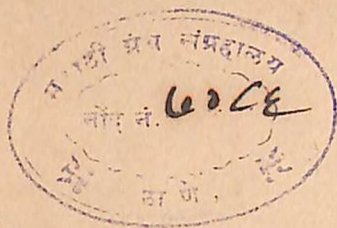 मराठी ग्रंथ संग्रहालय
नोंद नं. ७०८६
ठा णे .